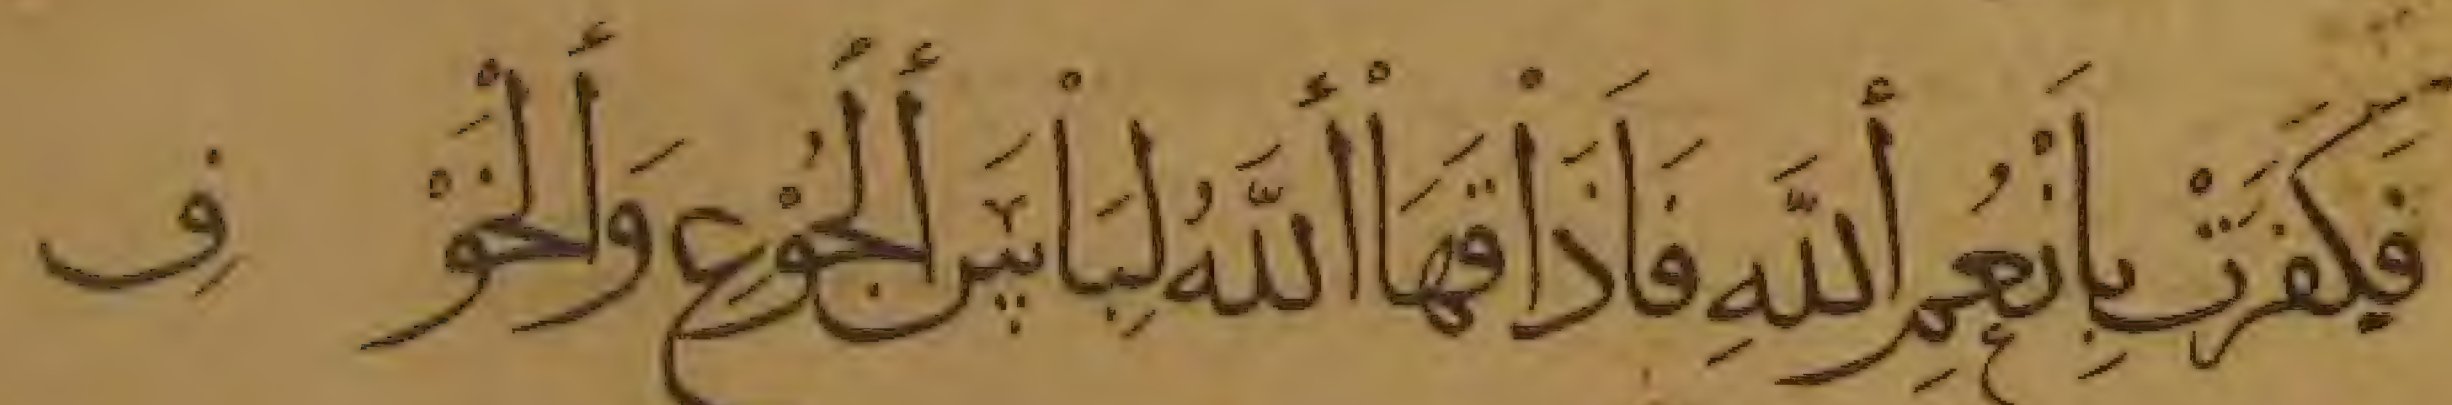 فَكَفَرَتْ بِأَنْعُمِ أَللَّهِ فَاَذَاْقَهَاْ أَللَّهُ لِبَاْسَ أَلْجُوْعِ وَأَلْخَوْفِ